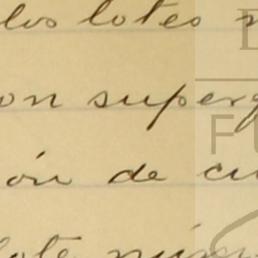 los lotes
on super
ión de cu
lote núm